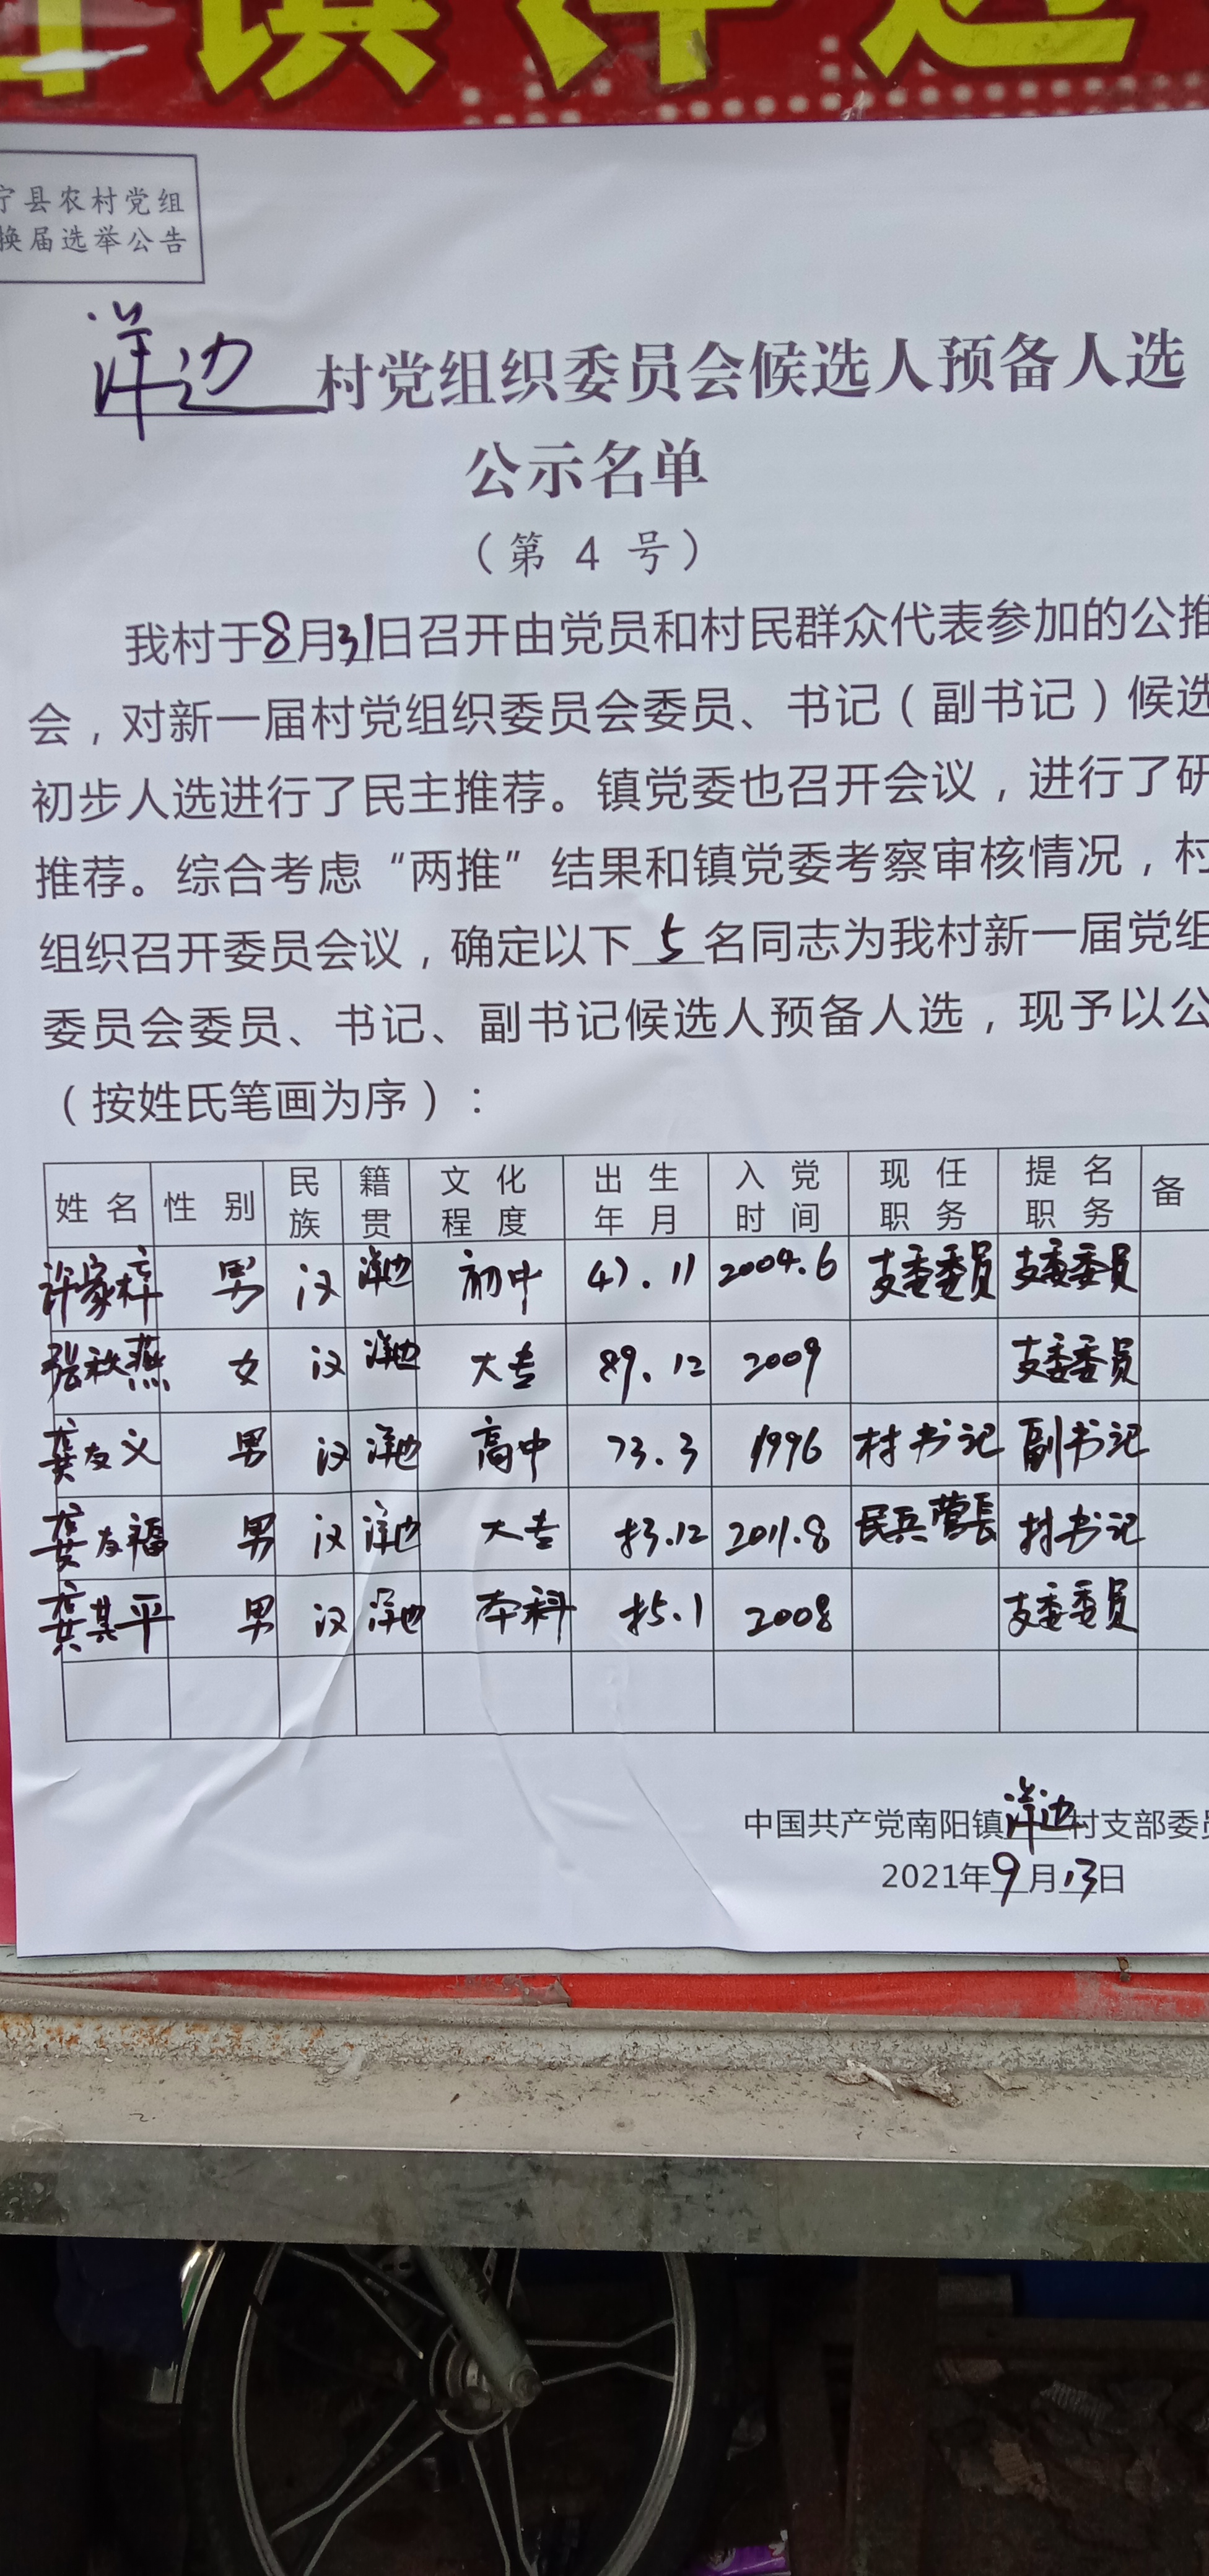 镇洋边
宁县农村党组
换届选举公告
洋边村党组织委员会候选人预备人选
公示名单
（第 4 号）
我村于8月31日召开由党员和村民群众代表参加的公推
会，对新一届村党组织委员会委员、书记（副书记）候选
初步人选进行了民主推荐。镇党委也召开会议，进行了研
推荐。综合考虑“两推”结果和镇党委考察审核情况，村
组织召开委员会议，确定以下5名同志为我村新一届党组
委员会委员、书记、副书记候选人预备人选，现予以公
（按姓氏笔画为序）：
姓名 性别 民族 籍贯 文化程度 出生年月 入党时间 现任职务 提名职务 备
许家梓 男 汉 洋边 初中 47.11 2004.6 支委委员 支委委员
张秋燕 女 汉 洋边 大专 89.12 2009 支委委员
龚友义 男 汉 洋边 高中 73.3 1996 村书记 副书记
龚友福 男 汉 洋边 大专 2011.8 民兵营长 村书记
龚其平 男 汉 洋边 本科 2008 支委委员
中国共产党南阳镇洋边村支部委员
2021年9月13日